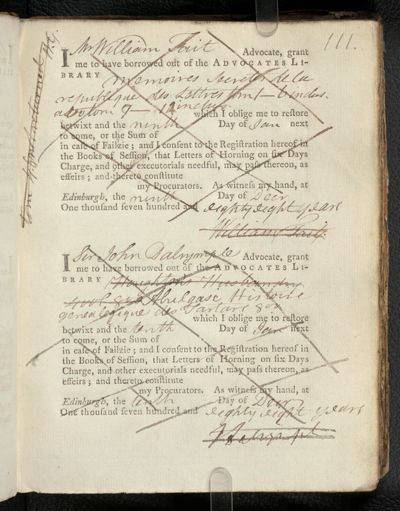 111.
I Mr William Tait Advocate, grant
me to have borrowed out of the ADVOCATES LI-
BRARY Memoires Secrets de la
republique des Lettres
which I oblige me to restore
betwixt and the ninth Day of Jan next
to come, or the Sum of
in case of Failzie; and I consent to the Registration hereof in
the Books of Session, that Letters of Horning on six Days
Charge, and other executorials needful, may pass thereon, as
effeirs; and thereto constitute
my Procurators. As witness my hand, at
Edinburgh, the ninth Day of Decr
One thousand seven hundred and eighty eight years
William Tait.
I Sir John Dalrymple Advocate, grant
me to have borrowed out of the ADVOCATES LI-
BRARY Houghton's Husbandry
Abulgasi Histoire
genealogique des Tartars 8vo
which I oblige me to restore
betwixt and the tenth Day of Jan next
to come, or the Sum of
in case of Failzie; and I consent to the Registration hereof in
the Books of Session, that Letters of Horning on six Days
Charge, and other executorials needful, may pass thereon, as
effeirs; and thereto constitute
my Procurators. As witness my hand, at
Edinburgh, the tenth Day of Decr
One thousand seven hundred and eighty eight years
J Dalrymple